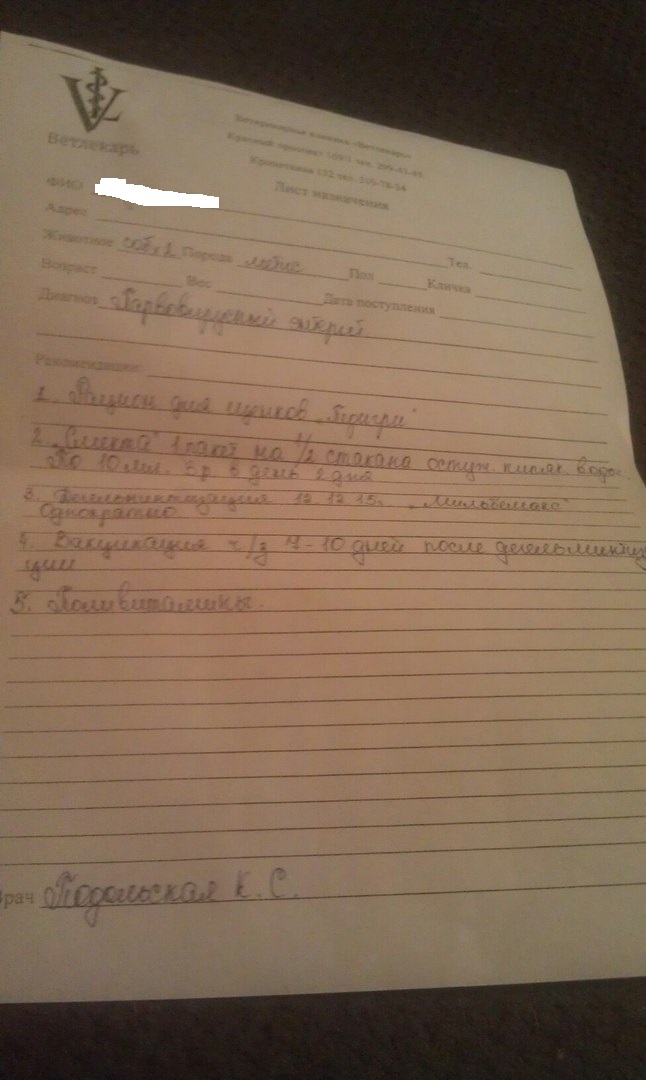 Ветлекарь
Ветеринарная клиника «Ветлекарь»
Красный проспект 169/1 тел. 299-41-49
Кропоткина 132 тел.
Лист назначения
ФИО
Адрес Тел.
Животное соб, 2 Порода метис Пол Кличка
Возраст Вес Дата поступления
Диагноз Парвовирусный энтерит
Рекомендации:
1. Рацион для щенков „Педигри"
2. „Смекта" 1 пакет на 1/2 стакана остуж. кипяк. воды.
По 10 мл. 3 р. в день 2 дня
3. Дегельминтизация 12.12.15. „Мильбемакс"
Однократно
4. Вакцинация ч/з 7-10 дней после дегельминтиза
ции
5. Поливитамины.
Врач Подольская К. С.